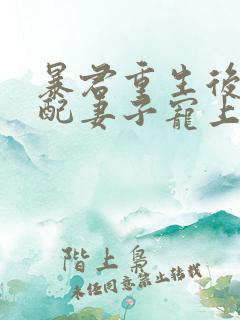 暴君重生後
配妻子寵上
階上梟
未經同意禁止轉載